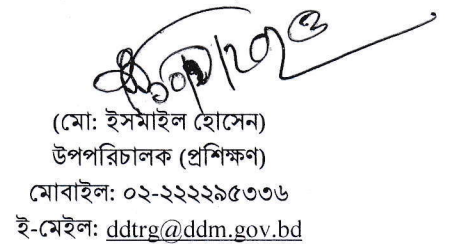 (মো: ইসমাইল হোসেন)
উপপরিচালক (প্রশিক্ষণ)
মোবাইল: ০২-২২২২৯৫৩৩৬
ই-মেইল: ddtrg@ddm.gov.bd